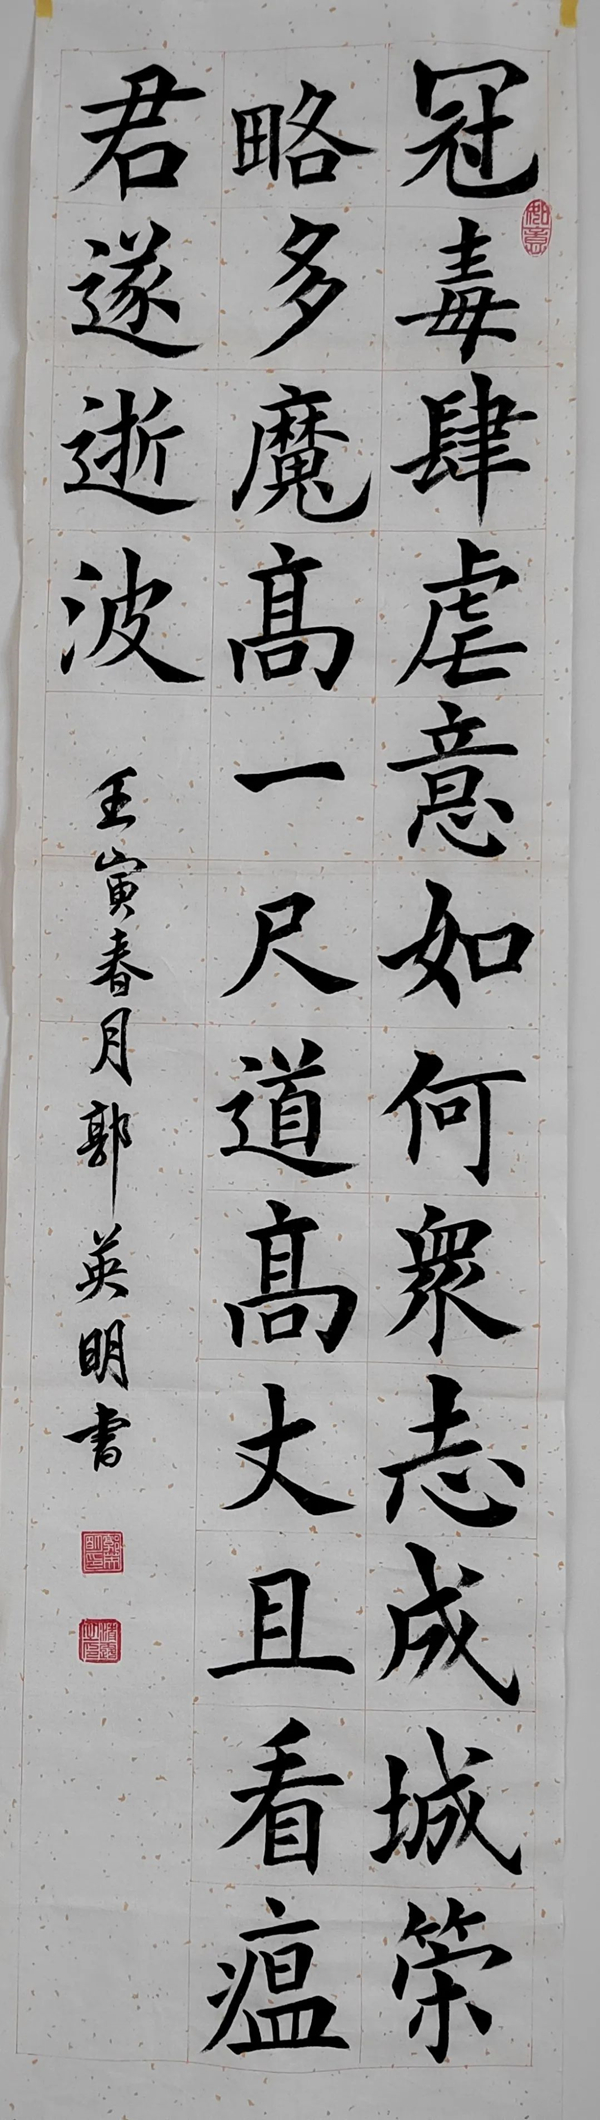 冠毒肆虐意如何衆志成城策
略多魔髙一尺道髙丈且看瘟
君遂逝波
壬寅春月郭英明書